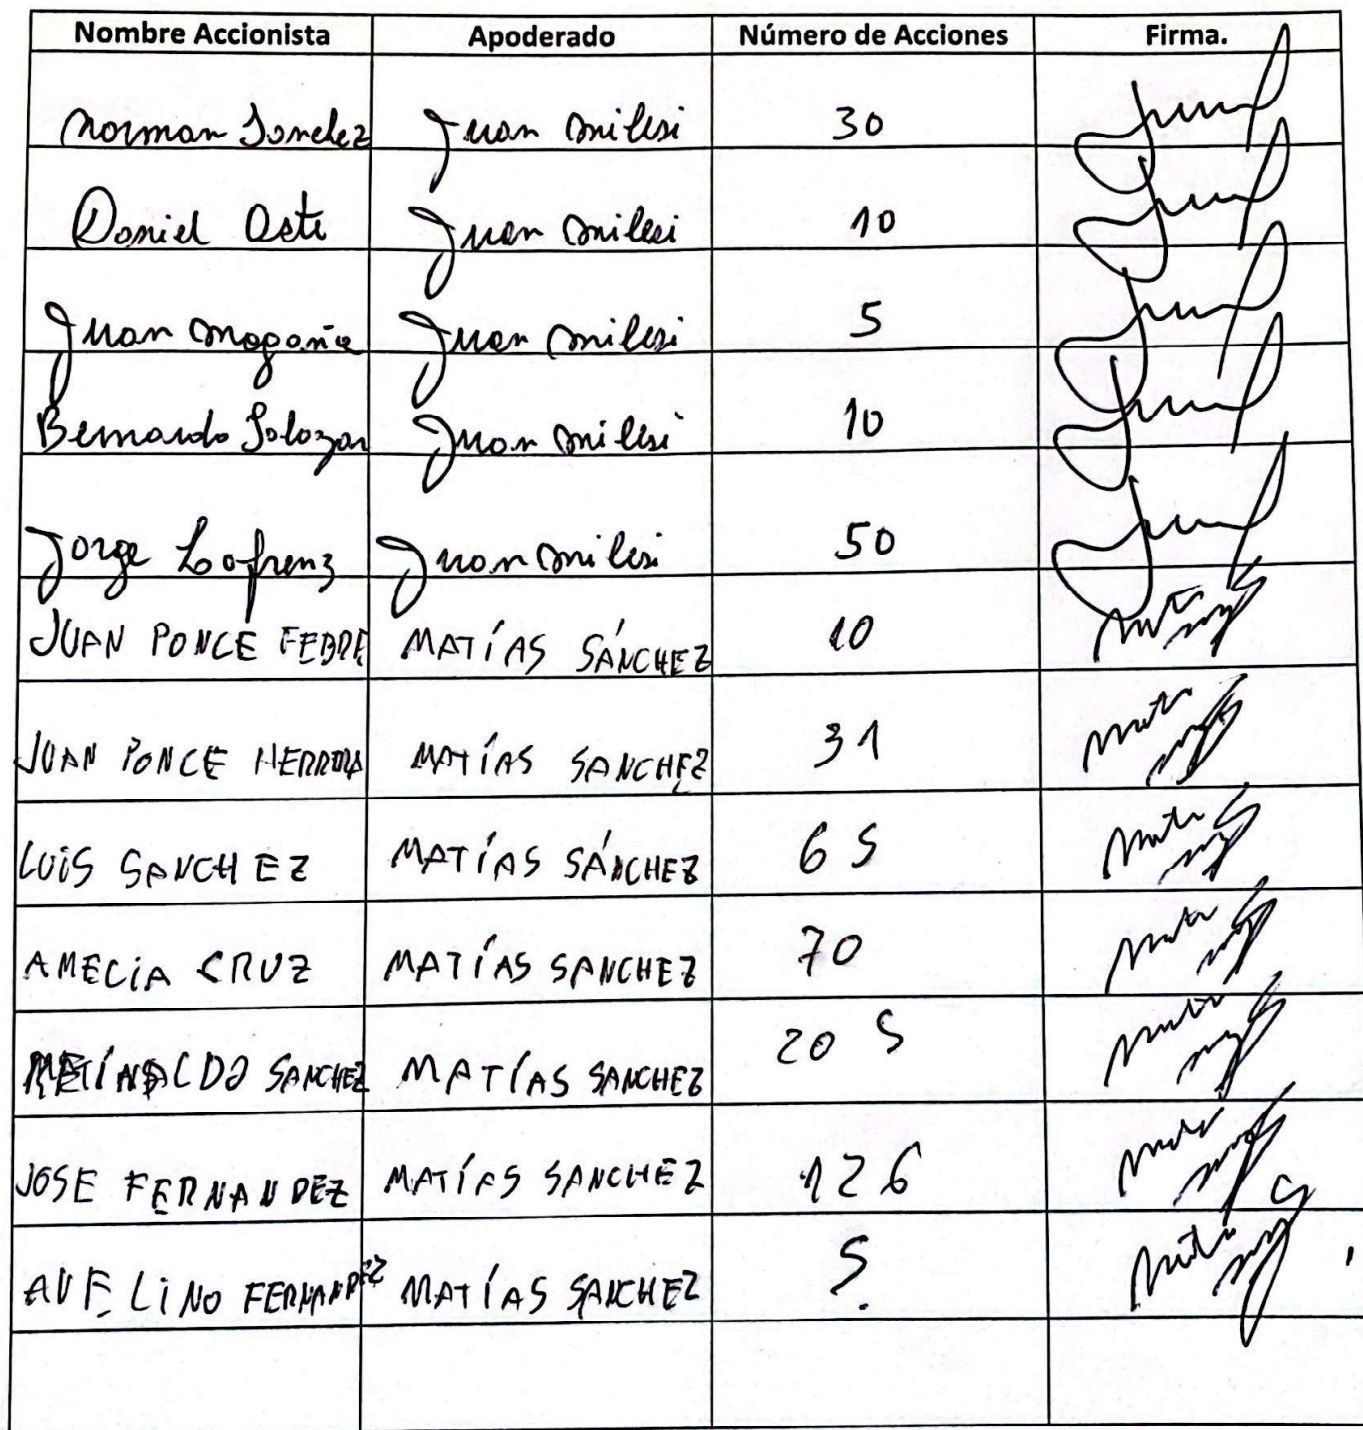 Nombre Accionista Apoderado Número de Acciones Firma.
Norman Sanchez Juan Milesi 30
Daniel Oste Juan Milesi 10
Juan Magaña Juan Milesi 5
Bernardo Salazar Juan Milesi 10
Jorge Lafrenz Juan Milesi 50
JUAN PONCE FEBRE MATÍAS SÁNCHEZ 10
JUAN PONCE HERRERA MATÍAS SANCHEZ 31
LUIS SANCHEZ MATÍAS SÁNCHEZ 65
AMECIA CRUZ MATÍAS SANCHEZ 70
SANCHEZ MATÍAS SANCHEZ 20 5
JOSE FERNANDEZ MATÍAS SANCHEZ 126
AVELINO FERNANDEZ MATÍAS SANCHEZ 5.